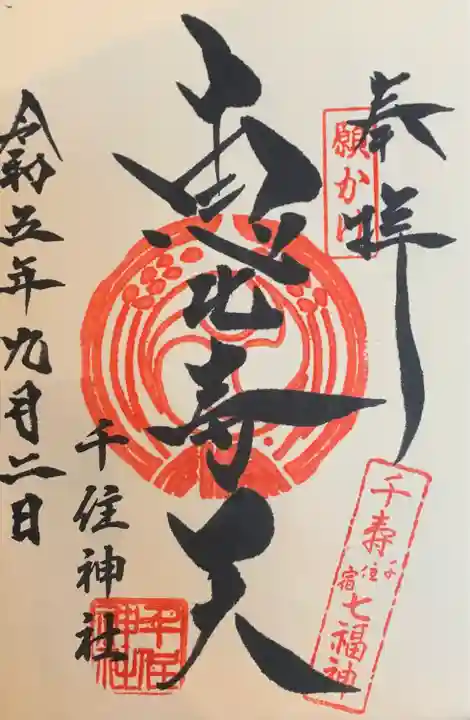 奉拝
願かけ
千寿七福神
千住宿
恵比寿天
千住神社
千住神社
令和五年九月二日